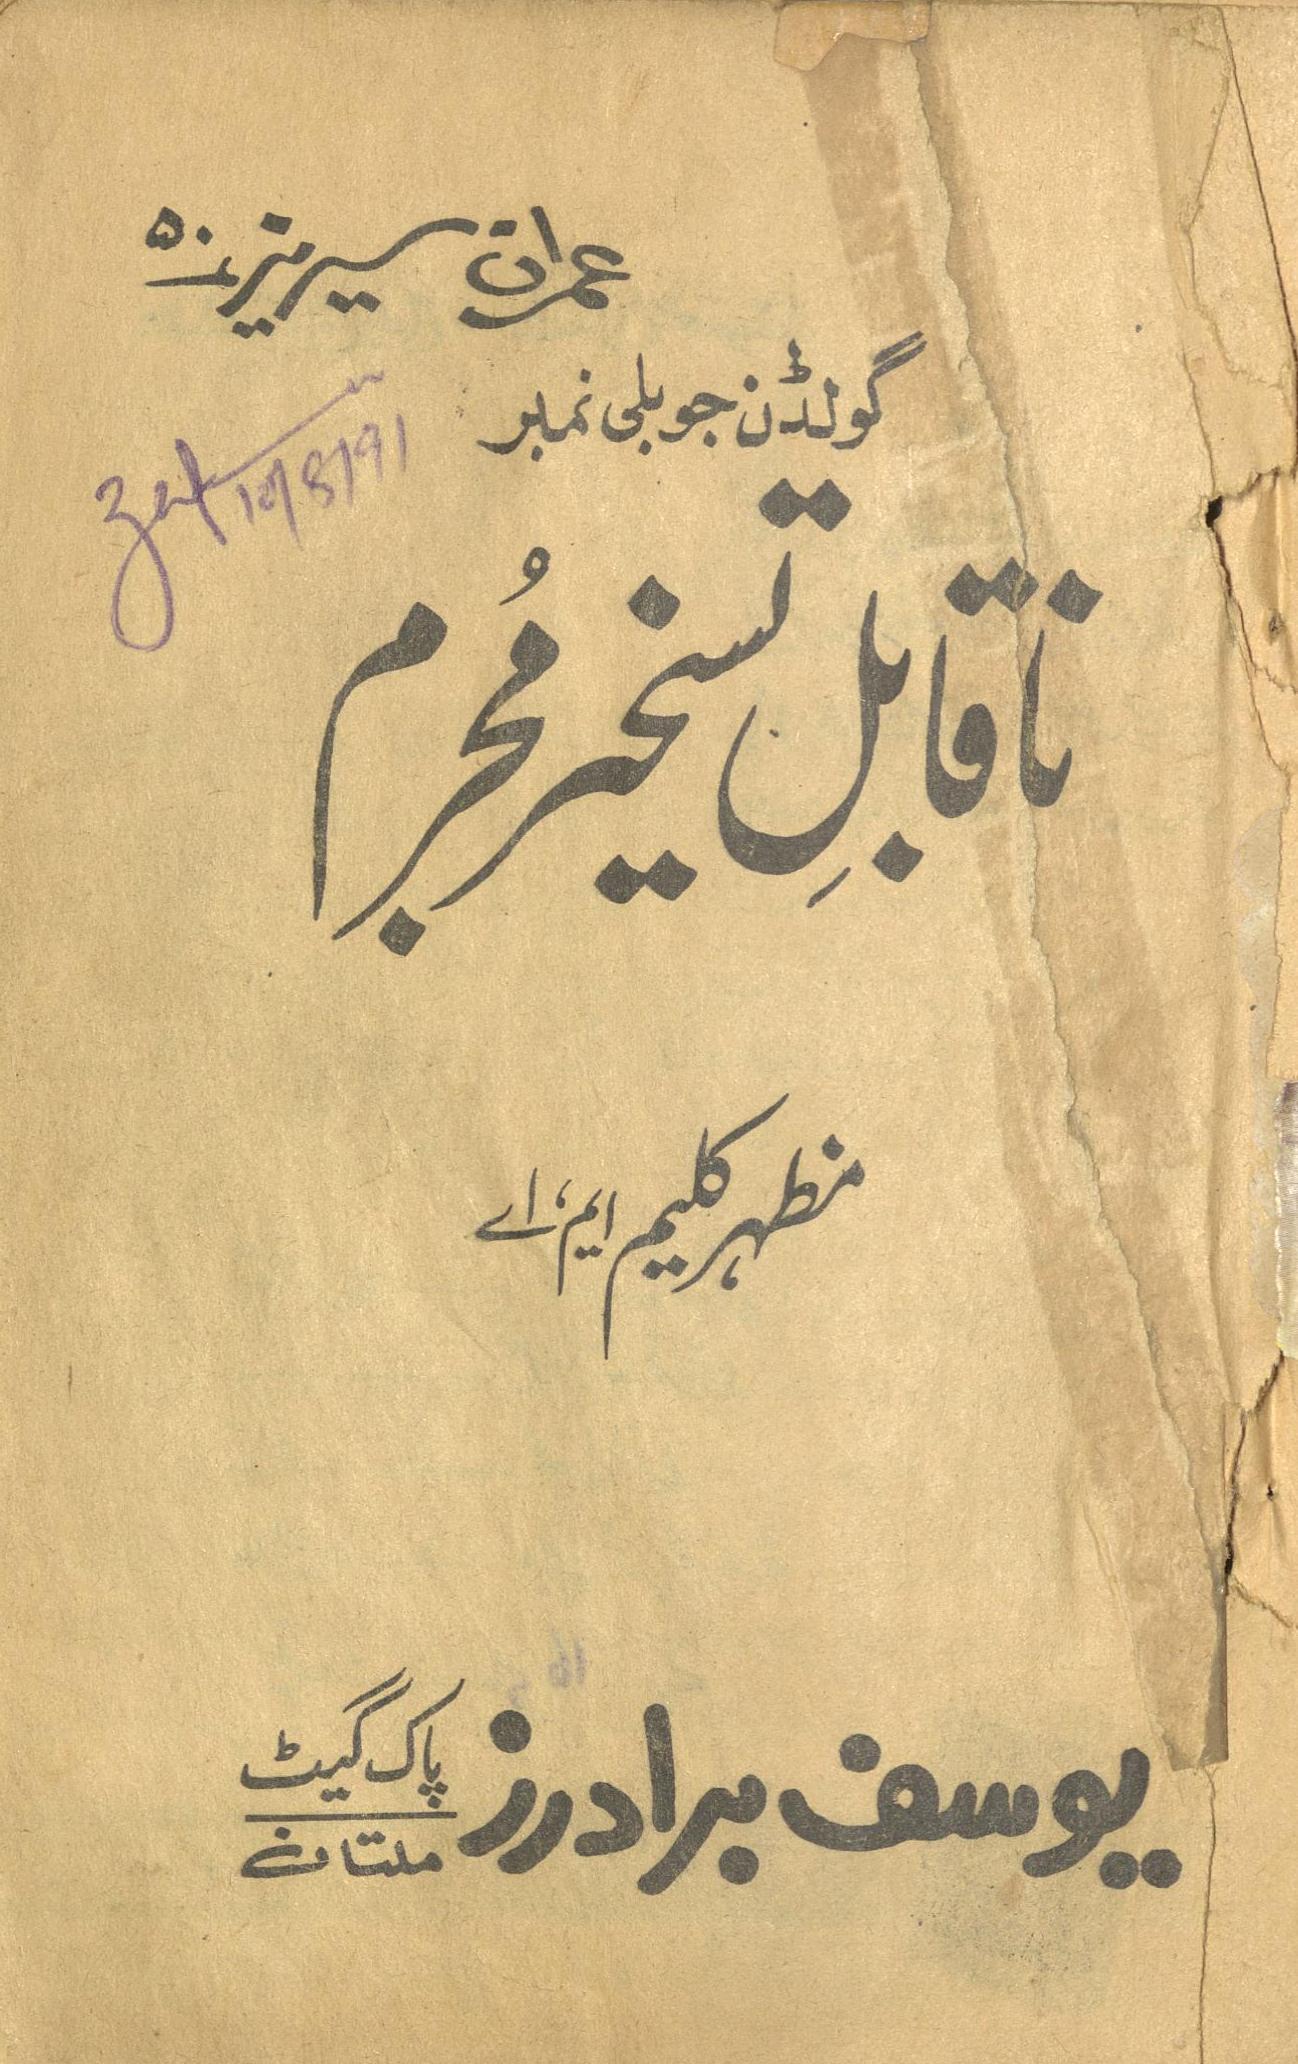 عمران سیریز نمبر ۵۰
گولڈن جوبلی نمبر
10/8/91
ناقابلِ تسخیر مُجرم
مظہر کلیم ایم، اے
یوسف برادرز پاک گیٹ
ملتان